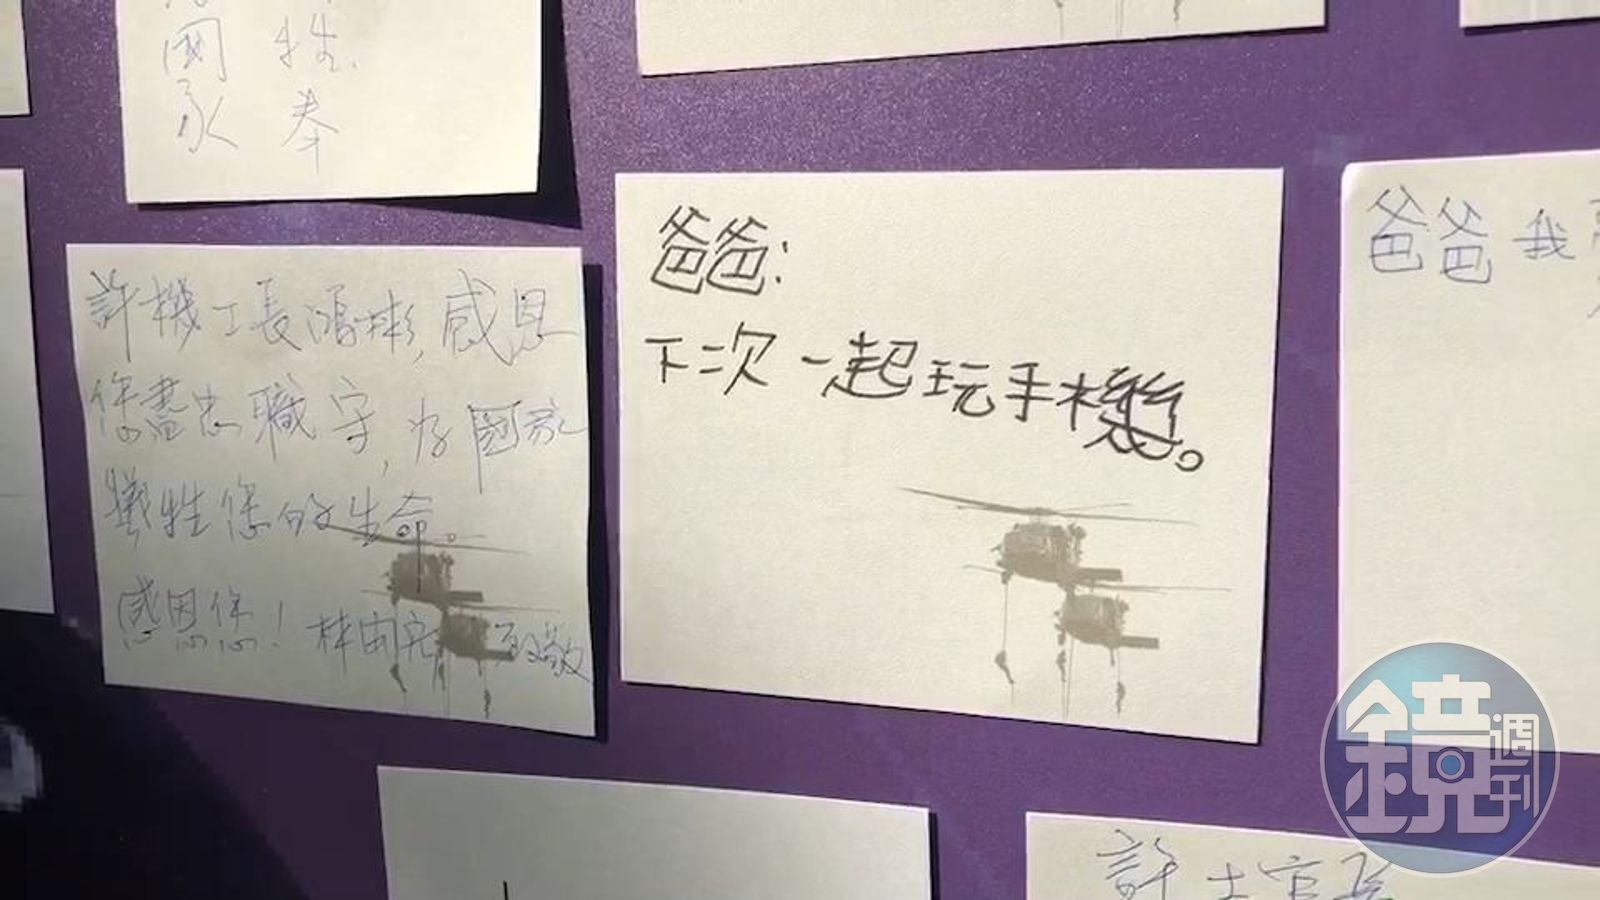 牲
奉
國
家
許機工長鴻彬,感恩
您盡忠職守,為國家
犧牲您的生命。
感恩您! 林 致敬
爸爸:
下次一起玩手機。
爸爸我
許士官長
鏡週刊